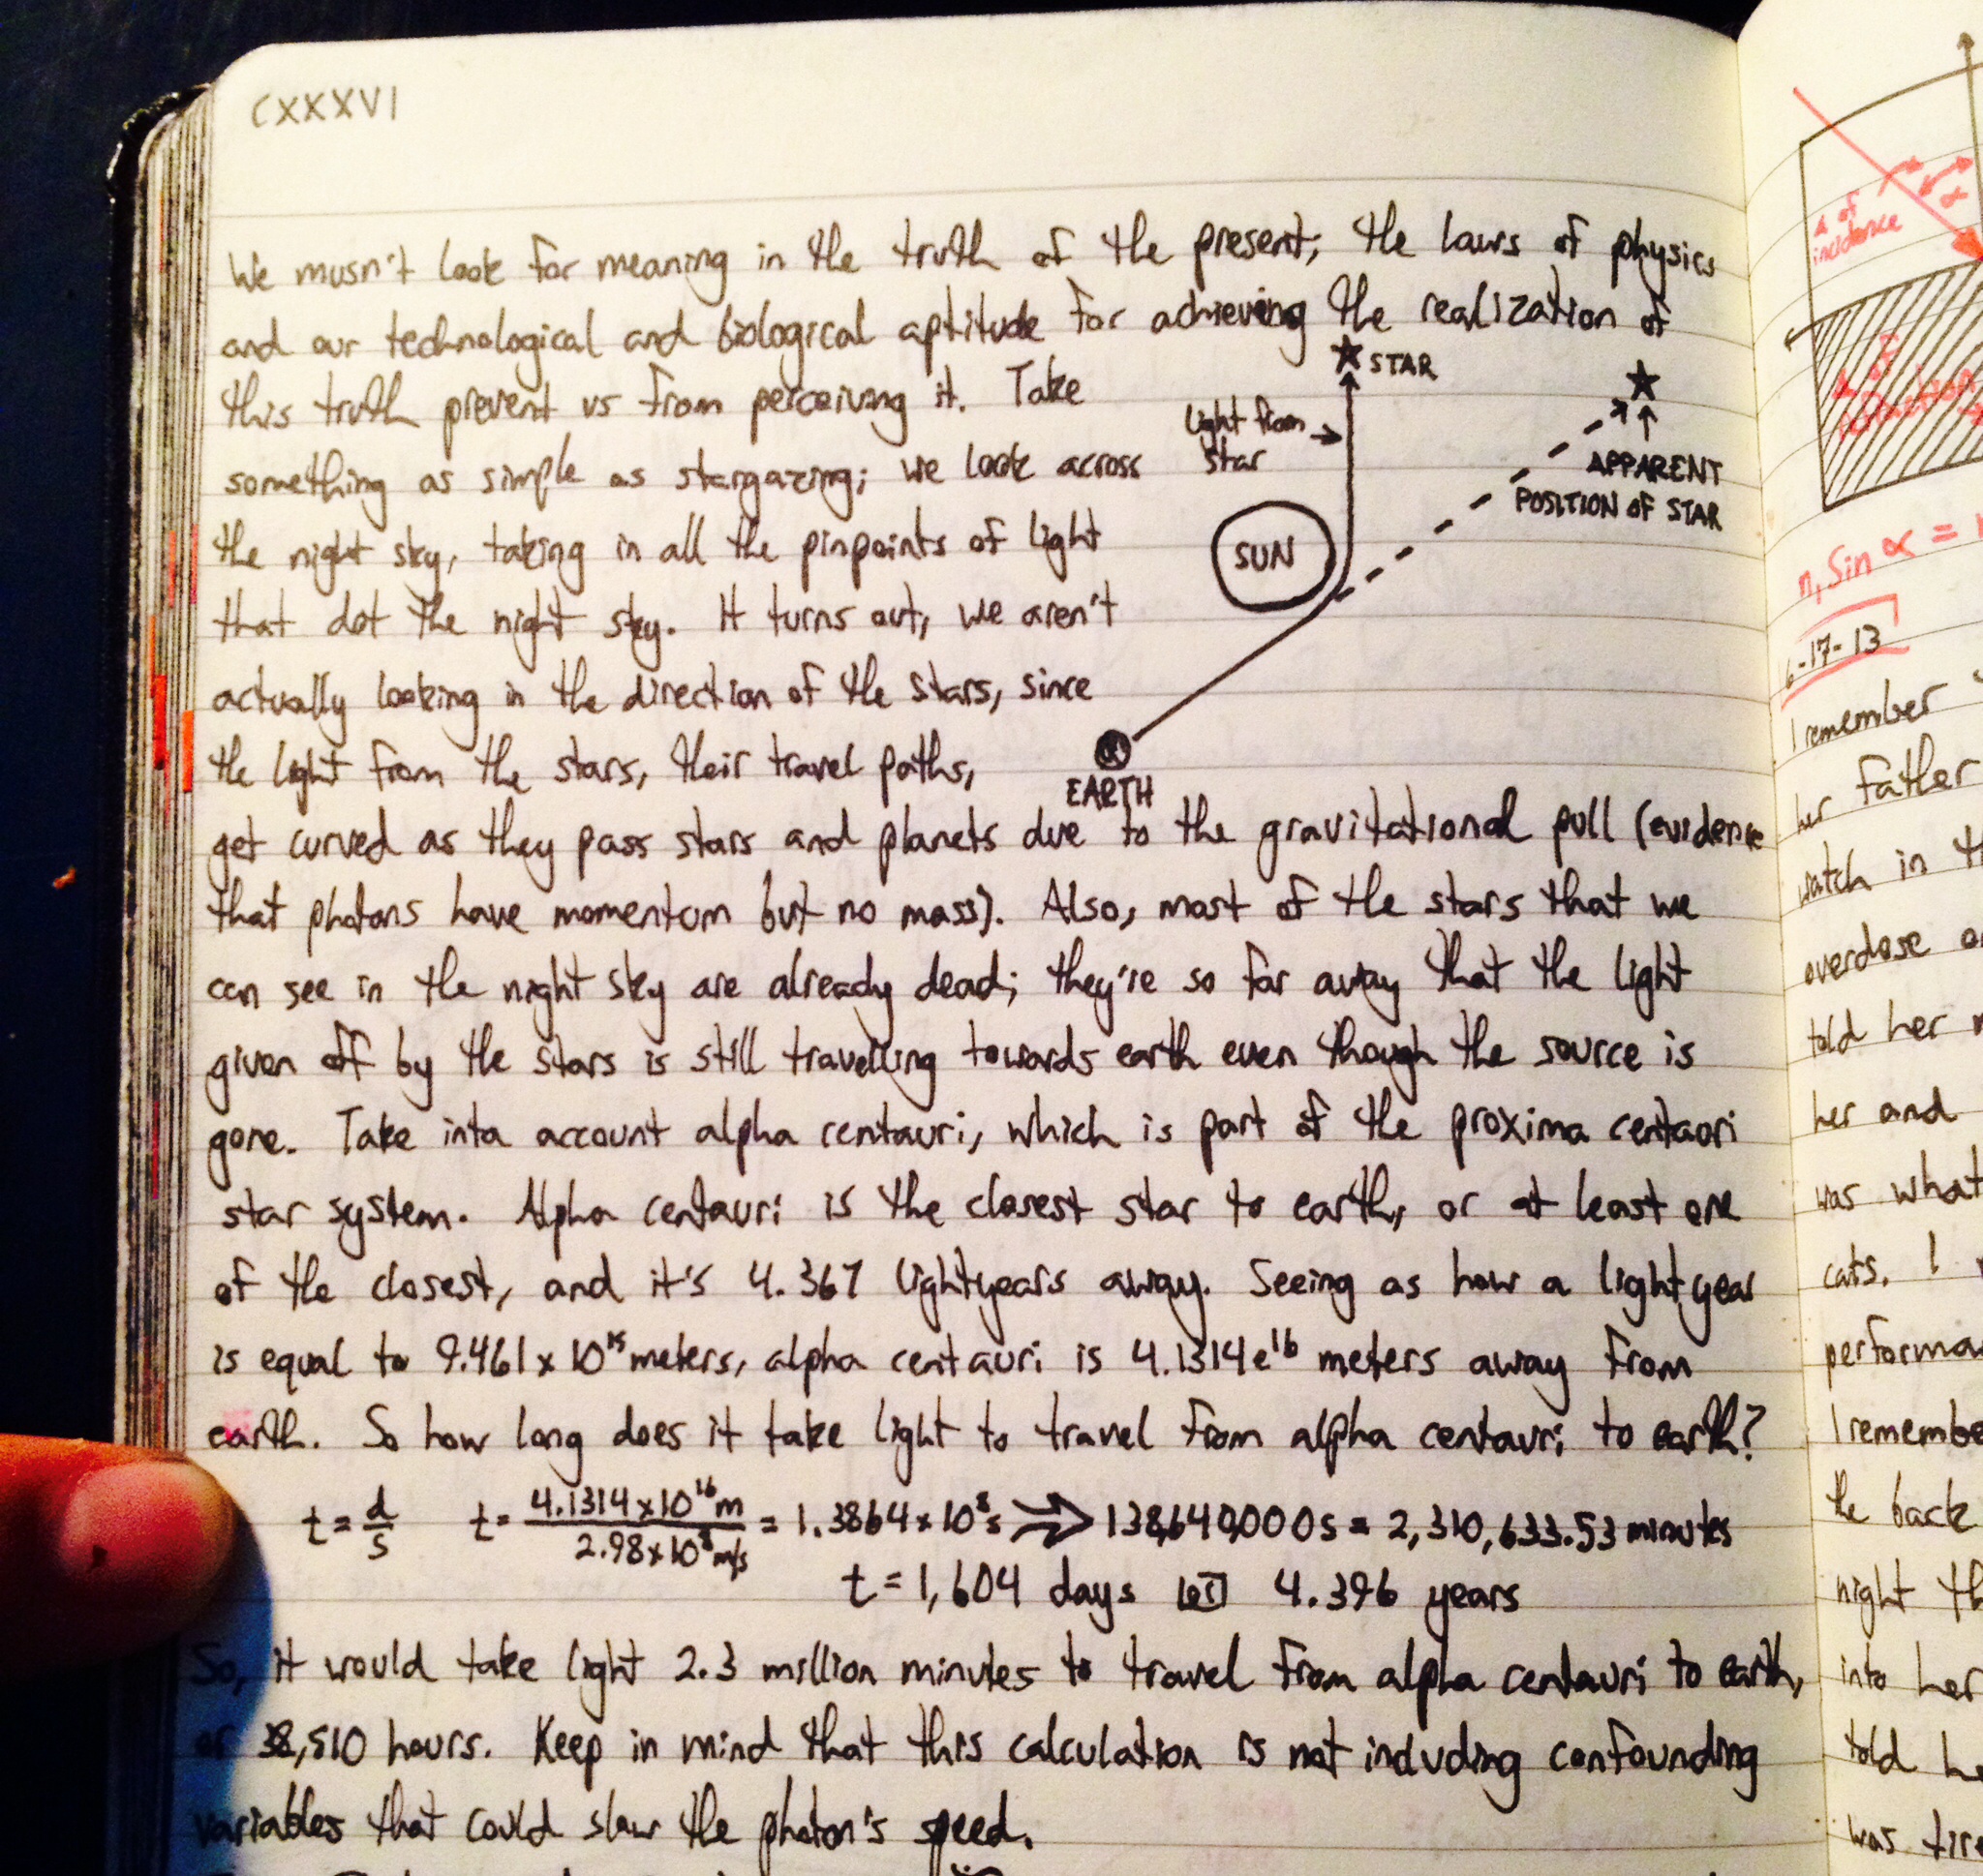 CXXXVI
We musn't look for meaning in the truth of the present; the laws of physics
and our technological and biological aptitude for achieving the realization of
this truth prevent us from perceiving it. Take
something as simple as stargazing; we look across
the night sky, taking in all the pinpoints of light
that dot the night sky. It turns out, we aren't
actually looking in the direction of the stars, since
the light from the stars, their travel paths,
get curved as they pass stars and planets due to the gravitational pull (evidence
that photons have momentum but no mass). Also, most of the stars that we
can see in the night sky are already dead; they're so far away that the light
given off by the stars is still travelling towards earth even though the source is
gone. Take into account alpha centauri, which is part of the proxima centauri
star system. Alpha centauri is the closest star to earth, or at least one
of the closest, and it's 4.367 lightyears away. Seeing as how a lightyear
is equal to 9.461 x 10¹⁵ meters, alpha centauri is 4.1314e¹⁶ meters away from
earth. So how long does it take light to travel from alpha centauri to earth?
t = d/s t = 4.1314 x 10¹⁶ m / 2.98 x 10⁸ m/s = 1.3864 x 10⁸ s ⇒ 138,640,000 s = 2,310,633.53 minutes
t = 1,604 days 4.396 years
So, it would take light 2.3 million minutes to travel from alpha centauri to earth,
or 38,510 hours. Keep in mind that this calculation is not including confounding
variables that could slow the photon's speed.
STAR
light from
star
APPARENT
POSITION OF STAR
SUN
EARTH
∡ of
incidence
α
n, Sin α =
6-17-13
I remember
her father
watch in
overdose
told her
her and
was what
cats. I
I remember
the back
night
into her
told
was